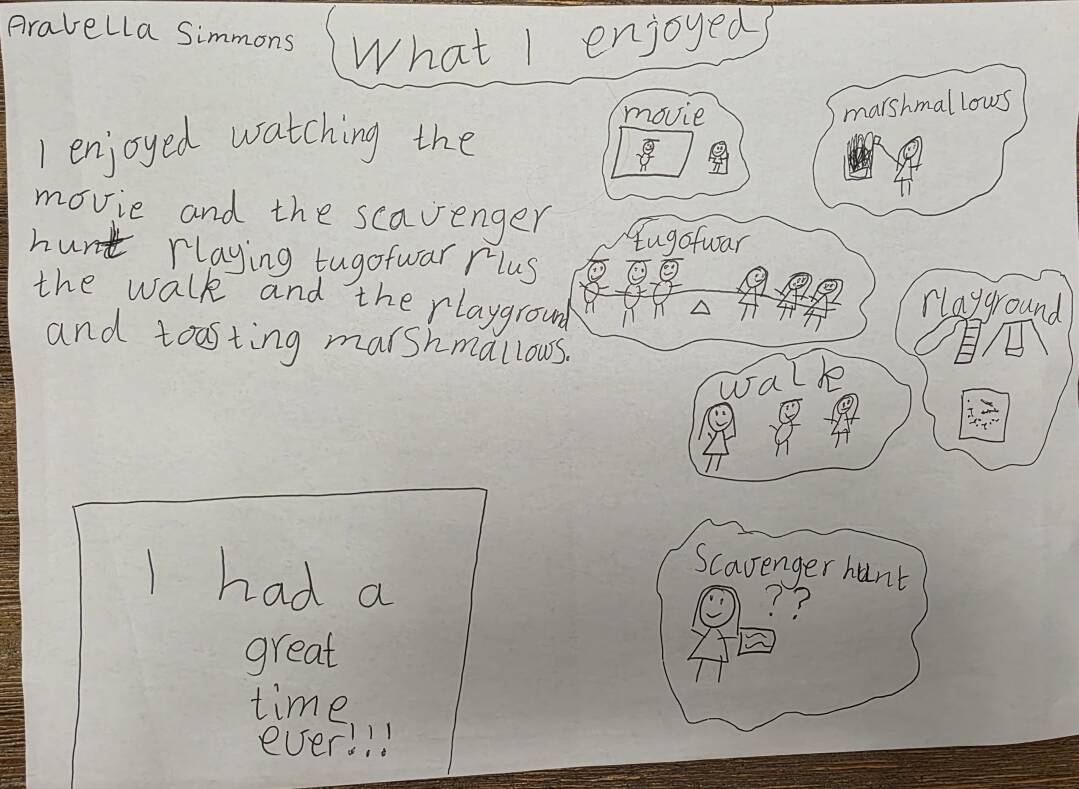 Arabella Simmons
What I enjoyed
I enjoyed watching the
movie and the scavenger
hunt playing tugofwar plus
the walk and the playground
and toasting marshmallows.
movie
marshmallows
tugofwar
playground
walk
scavenger hunt
??
I had a
great
time
ever!!!